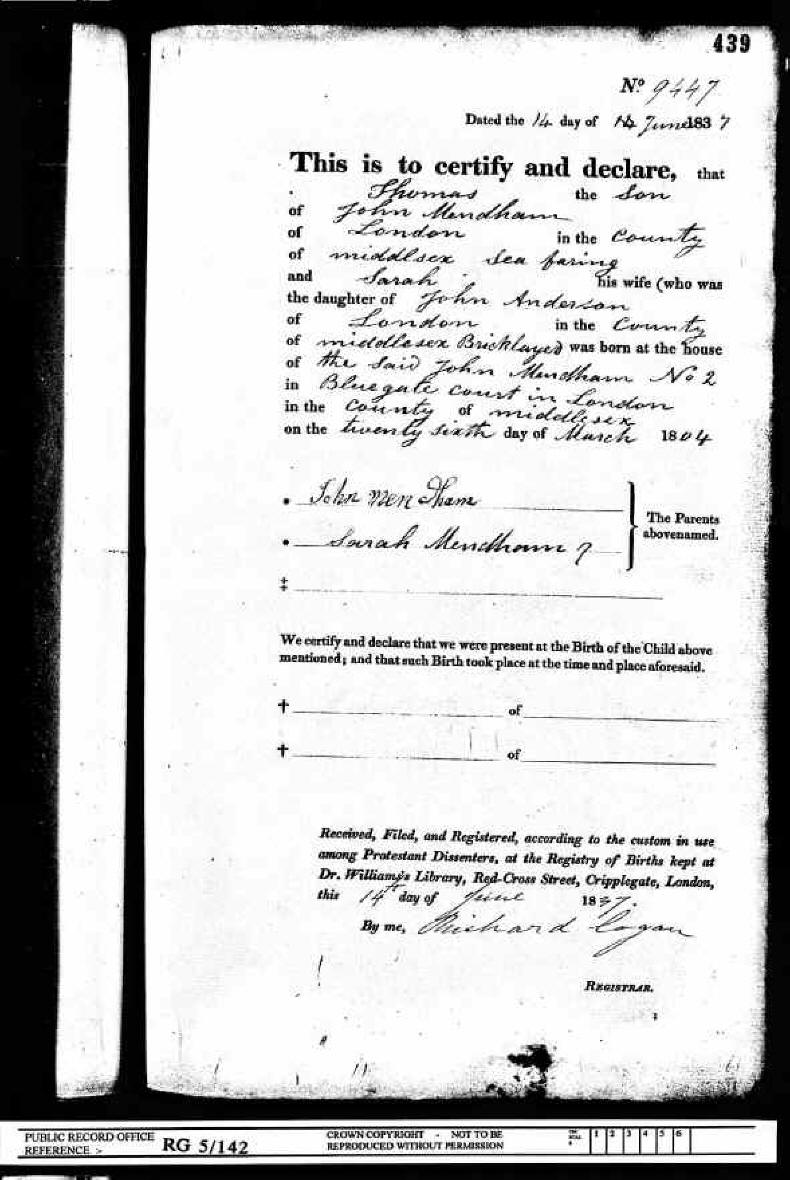 439
No. 9447
Dated the 14 day of 14 June 1837
This is to certify and declare, that
Thomas the Son
of John Mendham
of London in the County
of middlsex Sea faring
and Sarah his wife (who was
the daughter of John Anderson
of London in the County
of middlesex Bricklayer was born at the house
of the Said John Mendham No 2
in Bluegate Court in London
in the County of middlesex
on the twenty sixth day of March 1804
John Mendham
Sarah Mendham
The Parents
abovenamed.
‡
We certify and declare that we were present at the Birth of the Child above
mentioned; and that such Birth took place at the time and place aforesaid.
† of
† of
Received, Filed, and Registered, according to the custom in use
among Protestant Dissenters, at the Registry of Births kept at
Dr. Williams's Library, Red-Cross Street, Cripplegate, London,
this 14th day of June 1837.
By me, Richard Cogan
REGISTRAR.
PUBLIC RECORD OFFICE
REFERENCE :-
RG 5/142
CROWN COPYRIGHT - NOT TO BE
REPRODUCED WITHOUT PERMISSION
1 2 3 4 5 6